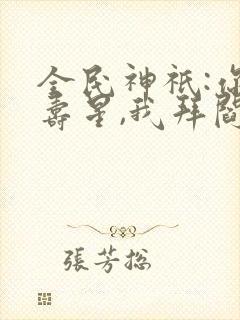 全民神祇:你
壽星,我拜閻
張芳總